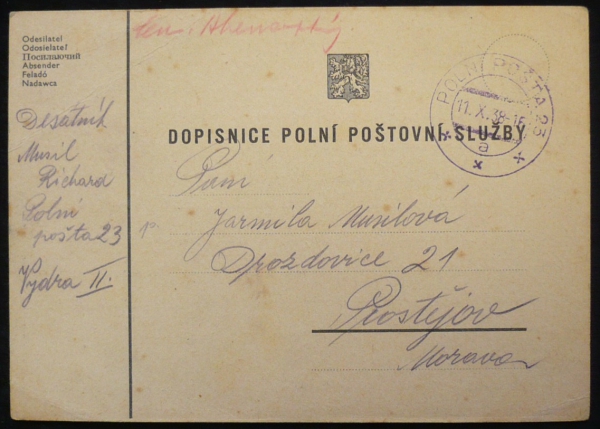 Odesílatel
Odosielateľ
Посилаючий
Absender
Feladó
Nadawca
Desátník
Musil
Richard
Polní
pošta 23
Vydra II.
POLNÍ POŠTA 23
11. X. 38-16
a
DOPISNICE POLNÍ POŠTOVNÍ SLUŽBY
Paní
p. Jarmila Musilová
Drozdovice 21
Prostějov
Morava